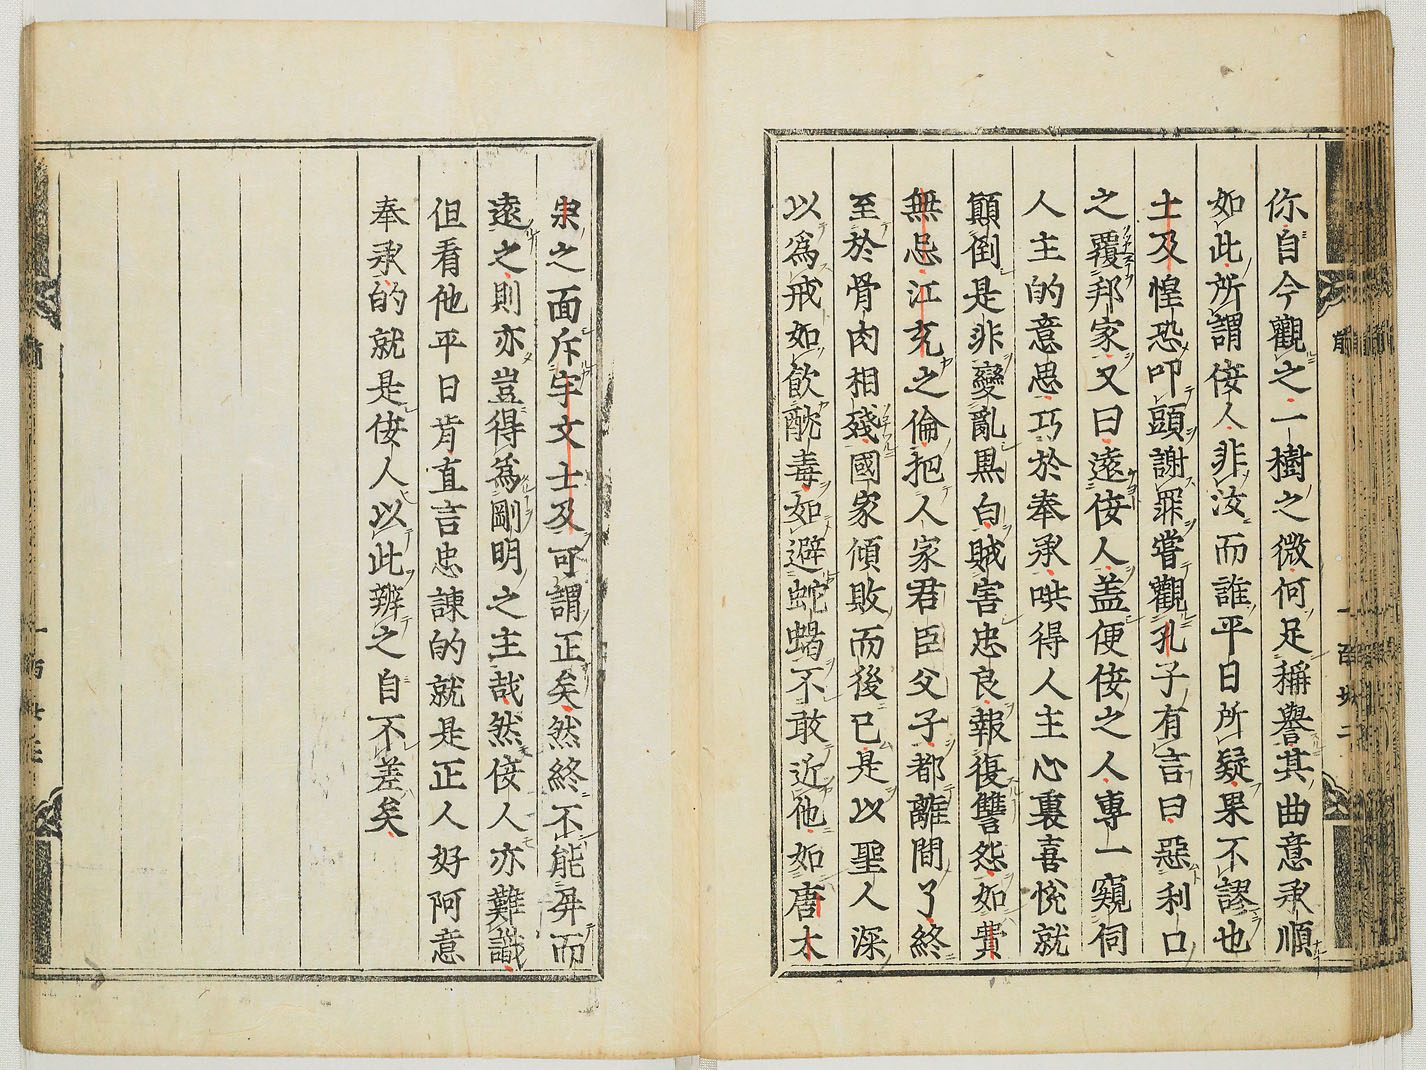 你自今觀之一樹之微何足稱譽其曲意承順
如此所謂侫人非汝而誰平日所疑果不謬也
士及惶恐叩頭謝罪嘗觀孔子有言曰惡利口
之覆邦家又曰遠侫人盖便侫之人專一窺伺
人主的意思巧於奉承哄得人主心裏喜恱就
顚倒是非變亂黒白賊害忠良報復讐怨如費
無忌江充之倫把人家君臣父子都離間了終
至於骨肉相殘國家傾敗而後已是以聖人深
以爲戒如飲酖毒如避蛇蝎不敢近他如唐太
宗之面斥宇文士及可謂正矣然終不能屏而
遠之則亦豈得爲剛明之主哉然侫人亦難識
但看他平日肯直言忠諫的就是正人好阿意
奉承的就是侫人以此辨之自不差矣